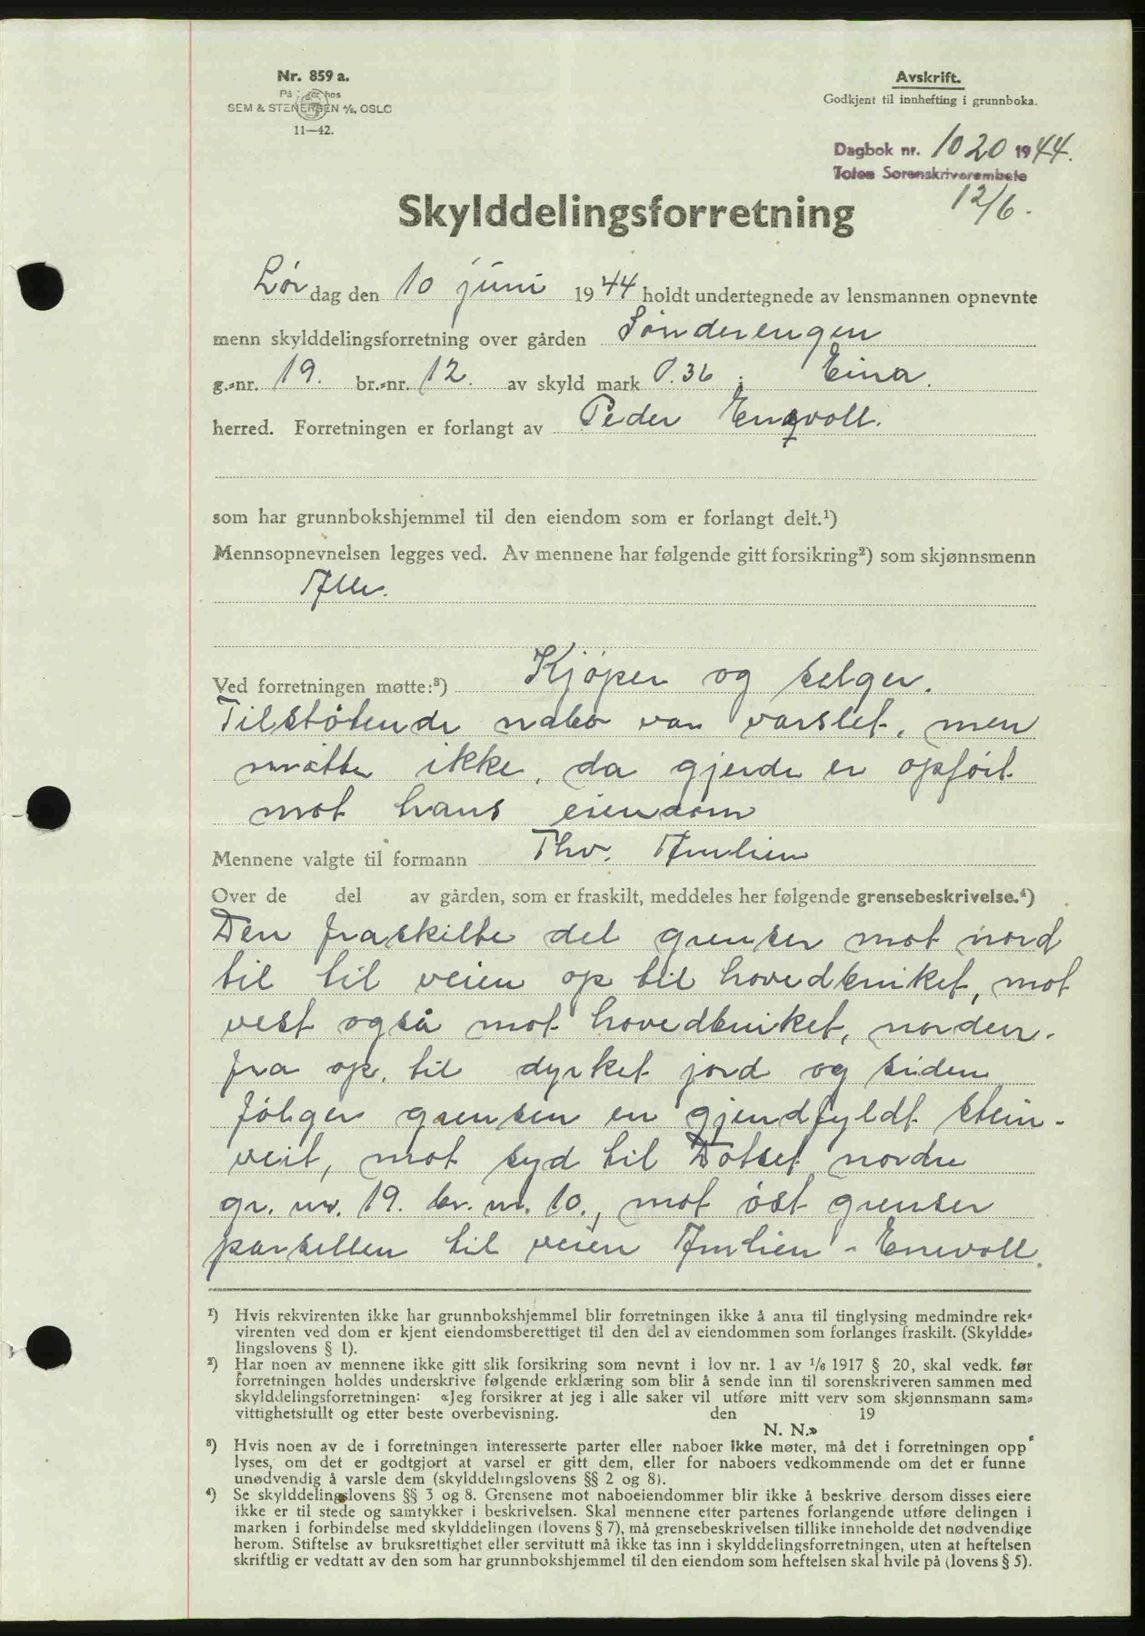 Nr. 859 a.
På lager hos
SEM & STENERSEN A/S, OSLO
11—42.
Avskrift.
Godkjent til innhefting i grunnboka.
Dagbok nr. 1020 1944.
Toten Sorenskriverembete
12/6.
Skylddelingsforretning
Lør dag den 10 juni 1944 holdt undertegnede av lensmannen opnevnte
menn skylddelingsforretning over gården Sønderengen
g.-nr. 19. br.-nr. 12. av skyld mark 0.36 i Eina.
herred. Forretningen er forlangt av Peder Enevoll.
som har grunnbokshjemmel til den eiendom som er forlangt delt.¹)
Mennsopnevnelsen legges ved. Av mennene har følgende gitt forsikring²) som skjønnsmenn
Alle.
Ved forretningen møtte:³) Kjøper og selger.
Tilstøtende nabo var varslet, men
møtte ikke, da gjerde er opført
mot hans eiendom
Mennene valgte til formann Thv. Amlien
Over de del av gården, som er fraskilt, meddeles her følgende grensebeskrivelse.⁴)
Den fraskilte del grenser mot nord
til til veien op til hovedbruket, mot
vest også mot hovedbruket, norden-
fra op. til dyrket jord og siden
følger grensen en gjendfyldt stein-
veit, mot syd til Dotset nordre
gr. nr. 19. br. nr. 10., mot øst grenser
parsellen til veien Amlien - Enevoll.
¹) Hvis rekvirenten ikke har grunnbokshjemmel blir forretningen ikke å anta til tinglysing medmindre rek-
virenten ved dom er kjent eiendomsberettiget til den del av eiendommen som forlanges fraskilt. (Skyldde-
lingslovens § 1).
²) Har noen av mennene ikke gitt slik forsikring som nevnt i lov nr. 1 av 1/6 1917 § 20, skal vedk. før
forretningen holdes underskrive følgende erklæring som blir å sende inn til sorenskriveren sammen med
skylddelingsforretningen: «Jeg forsikrer at jeg i alle saker vil utføre mitt verv som skjønnsmann sam-
vittighetsfullt og etter beste overbevisning. den 19
N. N.»
³) Hvis noen av de i forretningen interesserte parter eller naboer ikke møter, må det i forretningen opp
lyses, om det er godtgjort at varsel er gitt dem, eller for naboers vedkommende om det er funne
unødvendig å varsle dem (skylddelingslovens §§ 2 og 8).
⁴) Se skylddelingslovens §§ 3 og 8. Grensene mot naboeiendommer blir ikke å beskrive dersom disses eiere
ikke er til stede og samtykker i beskrivelsen. Skal mennene etter partenes forlangende utføre delingen i
marken i forbindelse med skylddelingen (lovens § 7), må grensebeskrivelsen tillike inneholde det nødvendige
herom. Stiftelse av bruksrettighet eller servitutt må ikke tas inn i skylddelingsforretningen, uten at heftelsen
skriftlig er vedtatt av den som har grunnbokshjemmel til den eiendom som heftelsen skal hvile på (lovens § 5).